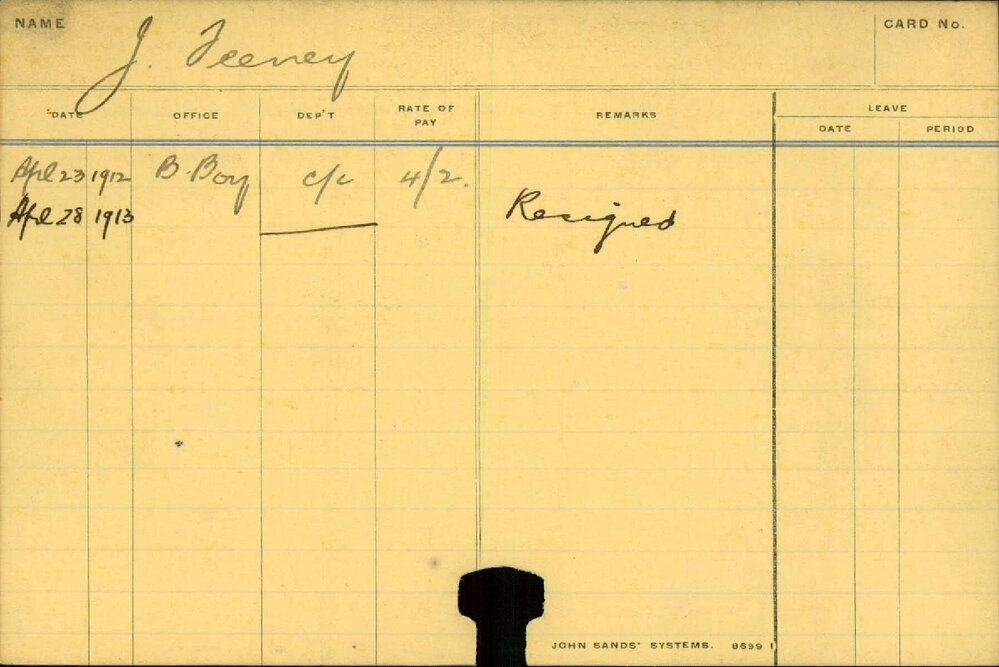 NAME J. Feeney CARD No.
DATE OFFICE DEP'T RATE OF PAY REMARKS LEAVE
DATE PERIOD
Apl 23 1912 B. Boy c/c 4/2.
Apl 28 1913 Resigned
JOHN SANDS' SYSTEMS. 8699